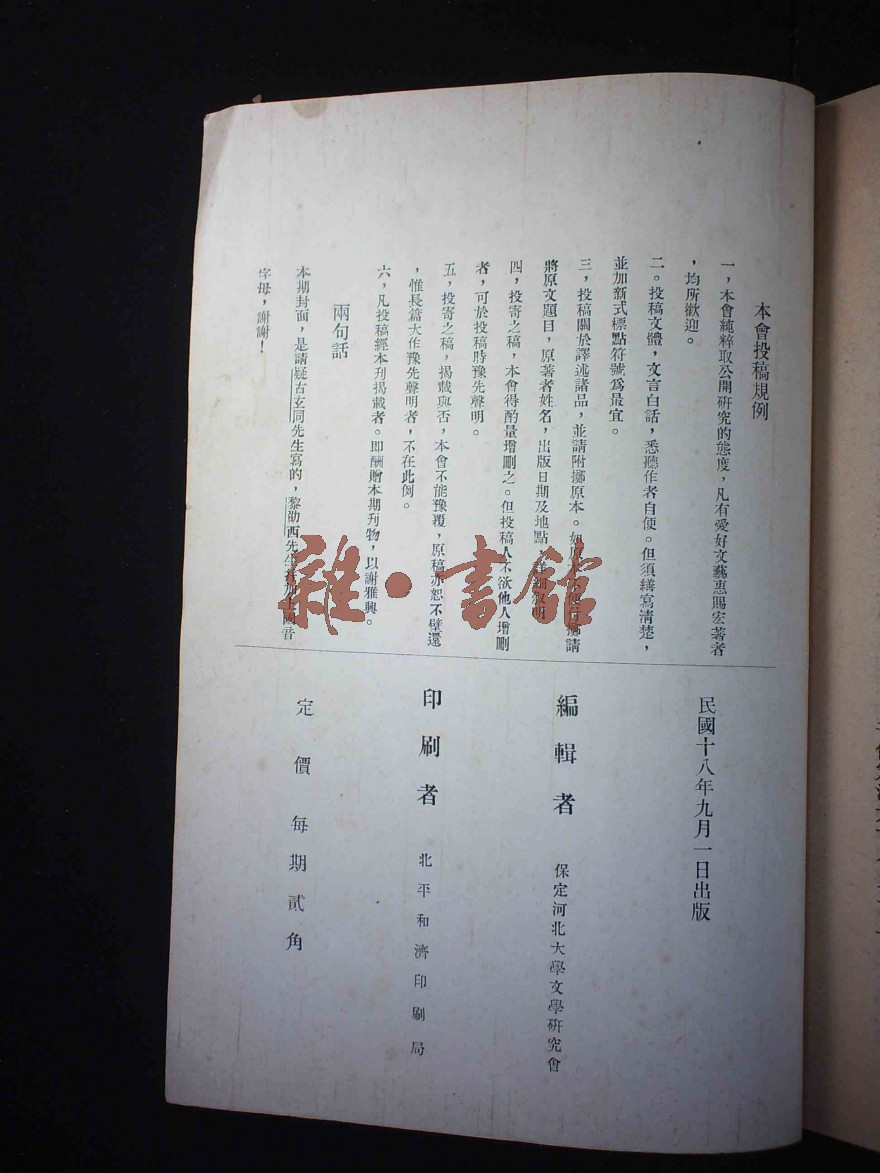 本會投稿規例
一，本會純粹取公開研究的態度，凡有愛好文藝惠賜宏著者
，均所歡迎。
二。投稿文體，文言白話，悉聽作者自便。但須繕寫清楚，
並加新式標點符號爲最宜。
三，投稿關於譯述諸品，並請附擲原本。如原
擲請
將原文題目，原著者姓名，出版日期及地點
四，投寄之稿，本會得酌量增刪之。但投稿人不欲他人增刪
者，可於投稿時豫先聲明。
五，投寄之稿，揭載與否，本會不能豫覆，原稿亦恕不璧還
，惟長篇大作豫先聲明者，不在此例。
六，凡投稿經本刊揭載者。即酬贈本期刊物，以謝雅興。
兩句話
本期封面，是請疑古玄同先生寫的，黎劭西先生
國音
字母，謝謝！
民國十八年九月一日出版
編輯者 保定河北大學文學研究會
印刷者 北平和濟印刷局
定價 每期貳角
雜·書館